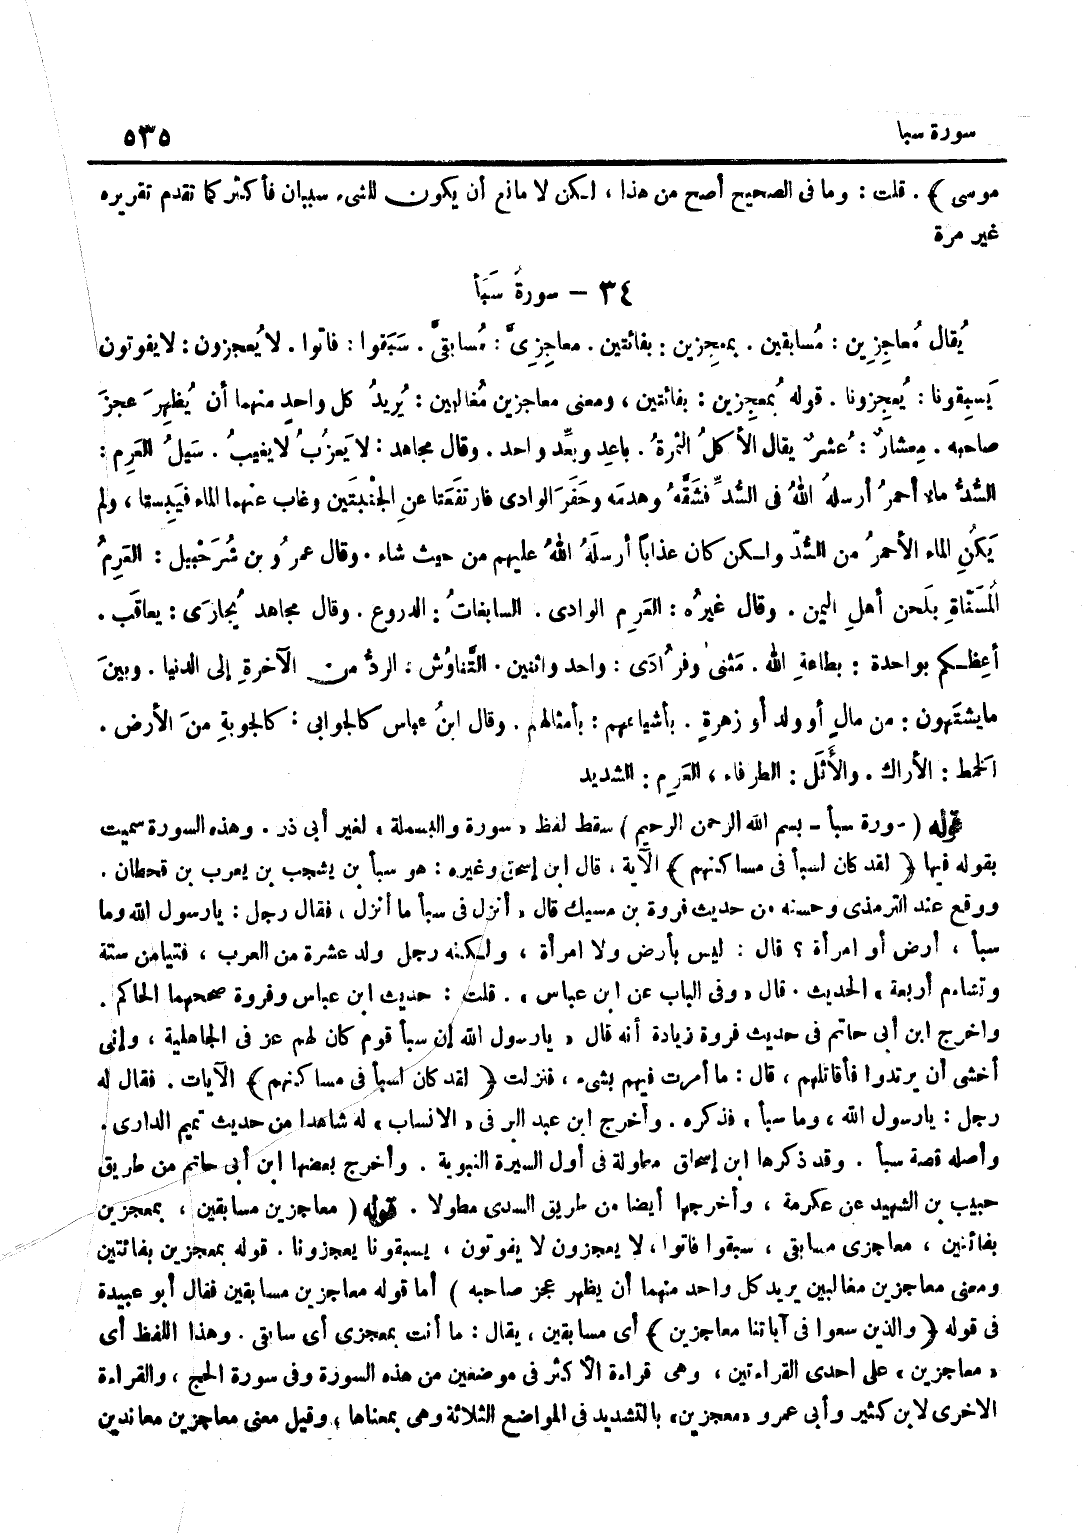 سورة سبا ٥٣٥
موسى ﴾ . قلت : وما فى الصحيح أصح من هذا ، لكن لا مانع أن يكون للشىء سببان فأكثر كما تقدم تقريره
غير مرة
٣٤ – سورةُ سَبَأ
يُقال مُعاجِزِين : مُسابقين . بمعجِزين : بفائتين . معاجِزِىَّ : مُسابقىَّ . سَبَقوا : فاتوا . لا يُعجزون : لايفوتون
يَسبِقونا : يُعجِزونا . قوله بُمعجِزين : بفائتين ، ومعنى معاجزين مُغالبين : يُريدُ كل واحدٍ منهما أن يُظهِرَ عجزَ
صاحبه . مِعشارٌ : عُشرٌ يقال الأكلُ الثمرةُ . باعِد وبعِّد واحد . وقال مجاهد : لا يَعزُبُ لايغيبُ . سَيلُ العَرِم :
السُّدُّ ماء أحمرُ أرسلهُ اللهُ فى السُّدِّ فشَقَّهُ وهدمَه وحَفَر الوادى فارتفَعَتا عنِ الجنْبتَين وغاب عنهما الماء فيَبِستا ، ولم
يَكُنِ الماء الأحمرُ من السُّدّ ولكن كان عذاباً أرسلَهُ اللهُ عليهم من حيث شاء . وقال عمرُو بن شُرَحْبيل : العَرِمُ
المُسَنّاةِ بلَحن أهلِ اليمن . وقال غيرُه : العَرِم الوادى . السابغاتُ : الدروع . وقال مجاهد يُجازَى : يعاقَب .
أعِظكم بواحدة : بطاعةِ الله . مَثنى وفرُادَى : واحد واثنين . التَّناوُش : الردُّ من الآخرةِ إلى الدنيا . وبينَ
مايشتَهون : من مالٍ أو ولد أو زهرةٍ . بأشياعهم : بأمثالهم . وقال ابنُ عباس كالجوابى : كالجوبةِ منَ الأرض .
الخمط : الأراك . والأَثَل : الطرفاء ، العَرِم : الشديد
قوله ( سورة سبأ - بسم الله الرحمن الرحيم ) سقط لفظ « سورة والبسملة » لغير أبى ذر . وهذه السورة سميت
بقوله فيها ﴿ لقد كان لسبأ فى مساكنهم ﴾ الآية ، قال ابن إسحق وغيره : هو سبأ بن يشجب بن يعرب بن قحطان .
ووقع عند الترمذى وحسنه من حديث فروة بن مسيك قال « أنزل فى سبأ ما أنزل ، فقال رجل : يارسول الله وما
سبأ ، أرض أو امرأة ؟ قال : ليس بأرض ولا امرأة ، ولكنه رجل ولد عشرة من العرب ، فتيامن ستة
وتشاءم أربعة » الحديث . قال « وفى الباب عن ابن عباس » . قلت : حديث ابن عباس وفروة صححهما الحاكم .
واخرج ابن أبى حاتم فى حديث فروة زيادة أنه قال « يارسول الله إن سبأ قوم كان لهم عز فى الجاهلية ، وإنى
أخشى أن يرتدوا فأقاتلهم ، قال : ما أمرت فيهم بشىء ، فنزلت ﴿ لقد كان لسبأ فى مساكنهم ﴾ الآيات . فقال له
رجل : يارسول الله ، وما سبأ » فذكره . وأخرج ابن عبد البر فى « الانساب » له شاهدا من حديث تميم الدارى .
وأصله قصة سبأ . وقد ذكرها ابن إسحاق مطولة فى أول السيرة النبوية . وأخرج بعضها ابن أبى حاتم من طريق
حبيب بن الشهيد عن عكرمة ، وأخرجها أيضا من طريق السدى مطولا . قوله ( معاجزين مسابقين ، بمعجزين
بفائتين ، معاجزى مسابقى ، سبقوا فاتوا ، لا يعجزون لا يفوتون ، يسبقونا يعجزونا . قوله بمعجزين بفائتين
ومعنى معاجزين مغالبين يريد كل واحد منهما أن يظهر عجز صاحبه ) أما قوله معاجزين مسابقين فقال أبو عبيدة
فى قوله ﴿ والذين سعوا فى آياتنا معاجزين ﴾ أى مسابقين ، يقال : ما أنت بمعجزى أى سابقى . وهذا اللفظ أى
« معاجزين » على احدى القراءتين ، وهى قراءة الأكثر فى موضعين من هذه السورة وفى سورة الحج ، والقراءة
الاخرى لابن كثير وأبى عمرو « معجزين » بالتشديد فى المواضع الثلاثة وهى بمعناها ، وقيل معنى معاجزين معاندين